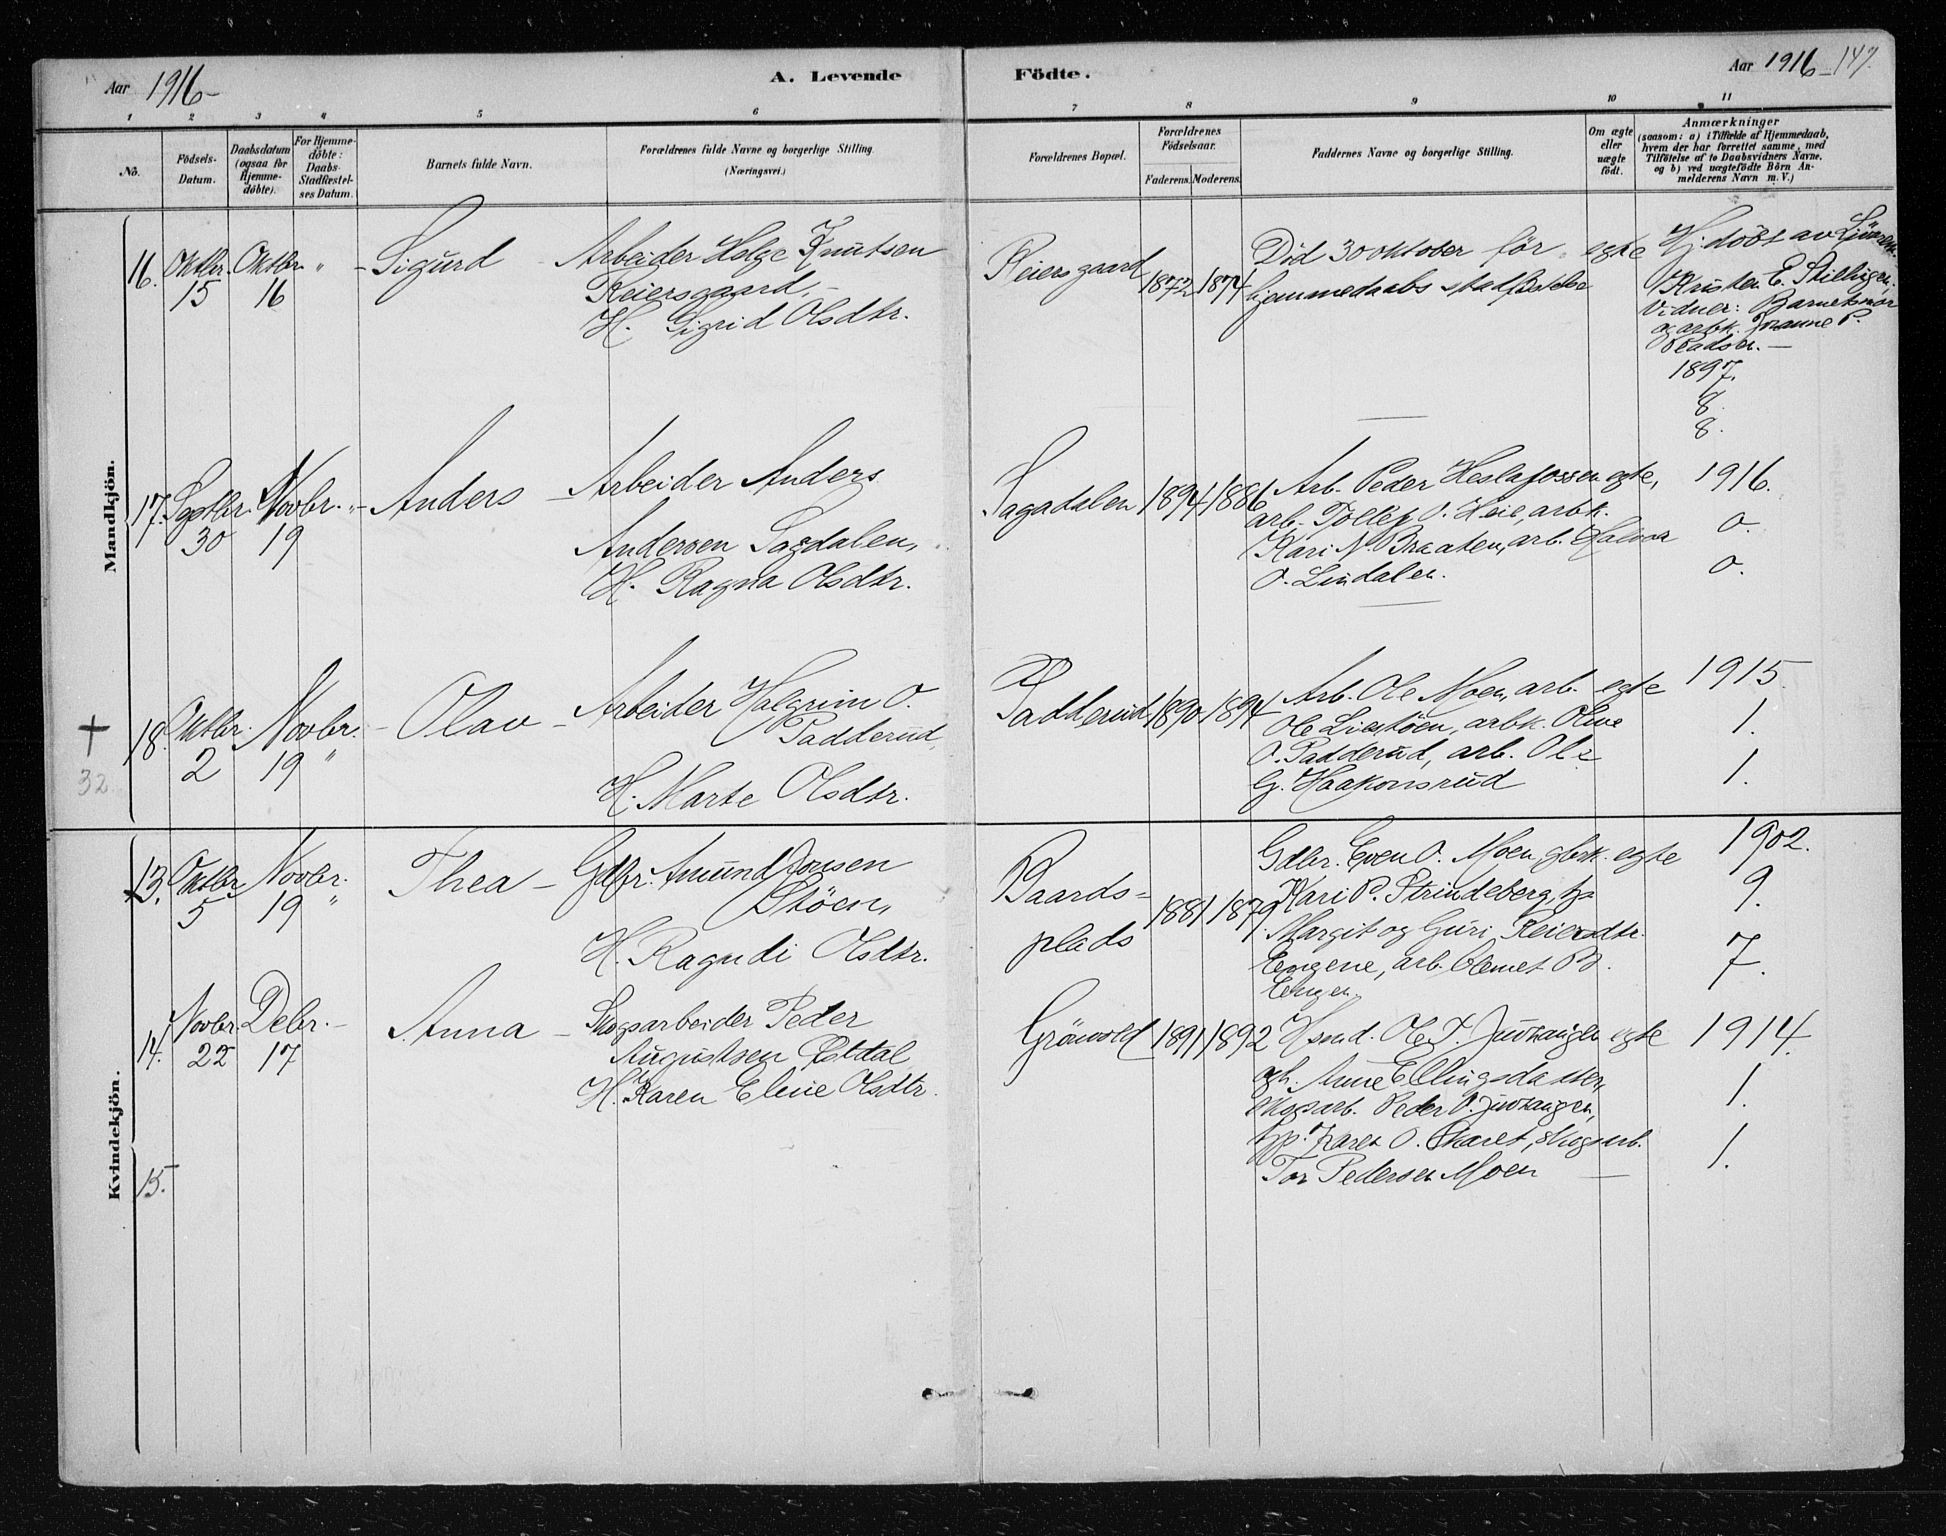 Aar 1916-
A. Levende
Födte.
Aar 1916-147.
1 2 3 4 5 6 7 8 9 10 11
No.
Födsels-
Datum.
Daabsdatum
(ogsaa för
Hjemme-
döbte).
For Hjemme-
döbte:
Daabs
Stadfæstel-
ses Datum.
Barnets fulde Navn.
Forældrenes fulde Navne og borgerlige Stilling.
(Næringsvei.)
Forældrenes Bopæl.
Forældrenes
Födselsaar.
Faderens.
Moderens.
Faddernes Navne og borgerlige Stilling.
Om ægte
eller
uægte
födt.
Anmærkninger
(saasom: a) i Tilfælde af Hjemmedaab,
hvem der har forrettet samme, med
Tilföielse af to Daabsvidners Navne,
og b) ved uægtefödte Börn An-
melderens Navn m. V.)
Mandkjön.
16. Oktbr. Oktbr. " - Sigurd - Arbeider Helge Knutsen
15 16
Keiersgaard,-
H. Sigrid Olsdtr.
Keiersgaard 1872 1874
Död 30 oktober för egte
hjemmedaabs stadfestelse
Hj.döbt av
Kristen E.
Vidner: Barnetsmor
og arbk. P.
1897.
8.
8.
17. Septbr. Novbr. "- Anders - Arbeider Anders
30 19
Andersen Sagdalen,
H. Ragna Olsdtr.
Sagadalen 1894 1886
Arb. Peder Heslajossen egte,
arb. Tollef O. Heie, arbk.
Kari N. Braaten, arb. Halvor
O. Lindalen.
1916.
0.
0.
18. Oktbr. Novbr. - Olav - Arbeider Halgrim O.
2 19 "
Padderud,
H. Marte Olsdtr.
32
Padderud 1890 1894
Arb. Ole Moen, arb. egte
Ole Liestöen, arbk. Oline
O. Padderud, arb. Ole
G. Haakonsrud
1915.
1.
1.
Kvindekjön.
13. Oktbr Novbr. Thea - Gdbr. Amund Jonsen
5 19 "
Stöen,
H. Ragndi Olsdtr.
Baards-
plads
1881 1879
Gdbr. Even O. Moen, gbrk. egte
Kari P. Strindeberg,
Margit og Guri Reiersdtr.
Engene, arb. Clemet
Engen,
1902.
9.
7.
14. Novbr. Debr. - Anna - Skogsarbeider Peder
22 17
Augustsen
H. Karen Eline Olsdtr.
Grönvold 1891 1892
Hsmd. Ole T. Juvzangen egte
gh. Anne Ellingsdatter,
skogsarb. Peder O. Juvzangen,
Karen O. Skaret, skogsarb.
Tor Pedersen Moen
1914.
1.
1.
15.